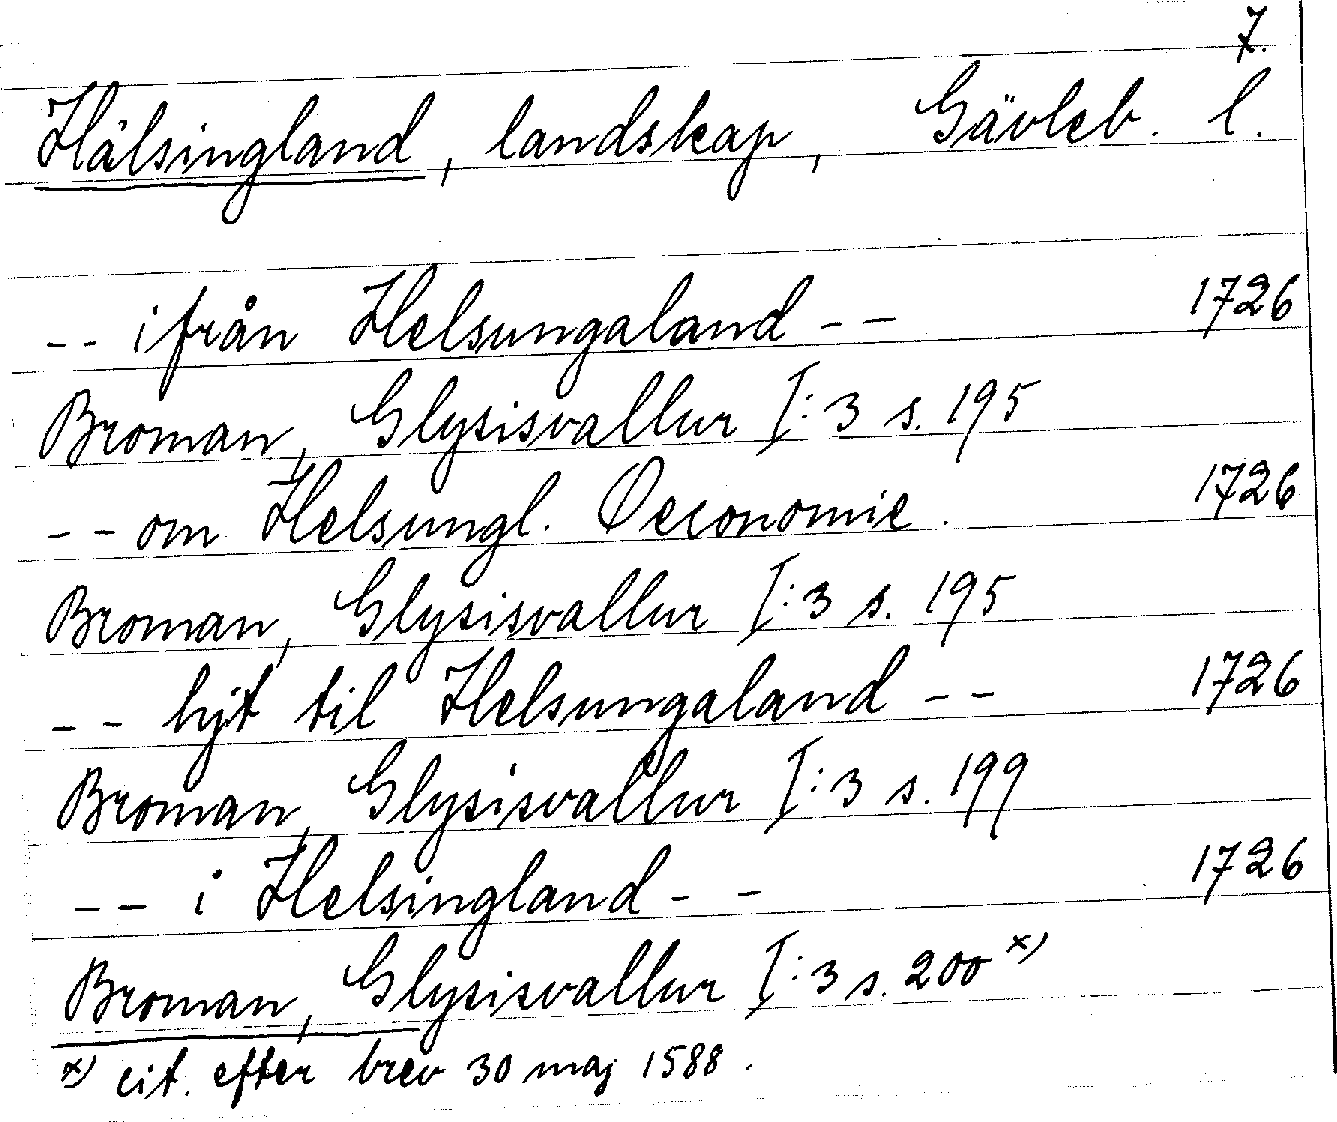 7.
Hälsingland, landskap, Gävleb. l.
-- ifrån Helsungaland -- 1726
Broman, Glysisvallur I:3 s. 195
-- om Helsungl. Oeconomie. 1726
Broman, Glysisvallur I:3 s. 195
-- hijt til Helsungaland -- 1726
Broman, Glysisvallur I:3 s. 199
-- i Helsingland -- 1726
Broman, Glysisvallur I:3 s. 200 x)
x) cit. efter brev 30 maj 1588.